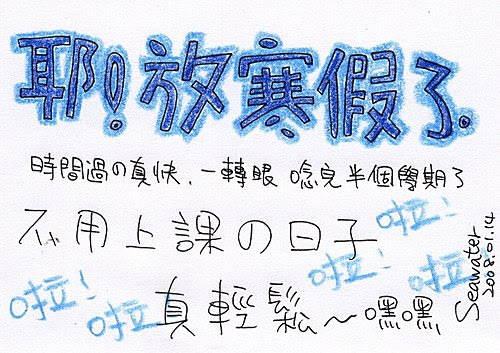 耶!放寒假了.
時間過の真快、一轉眼 唸完半個學期了
不用上課の日子
啦! 啦! 啦! 啦! 啦!
真輕鬆～嘿嘿
Seawater 2008.01.14